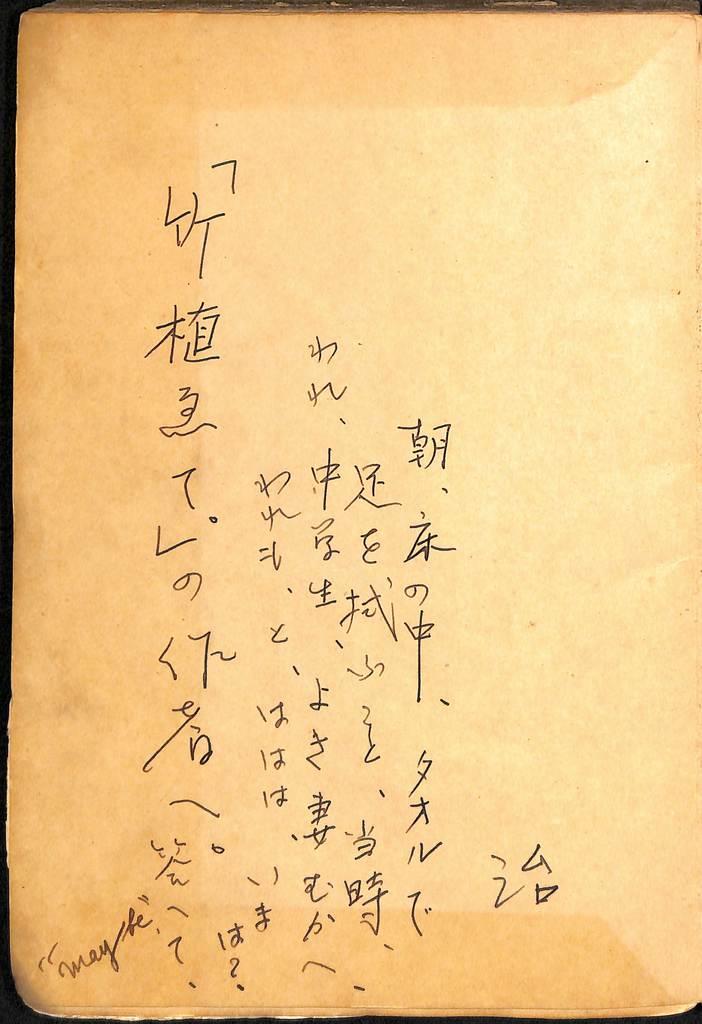 治
朝、床の中、タオルで
足を拭ふこと、当時、
われ、中学生、よき妻むかへ、
われも、と、ははは、いま
は？
「竹植ゑて。」の作者へ。答へて、
"may be"